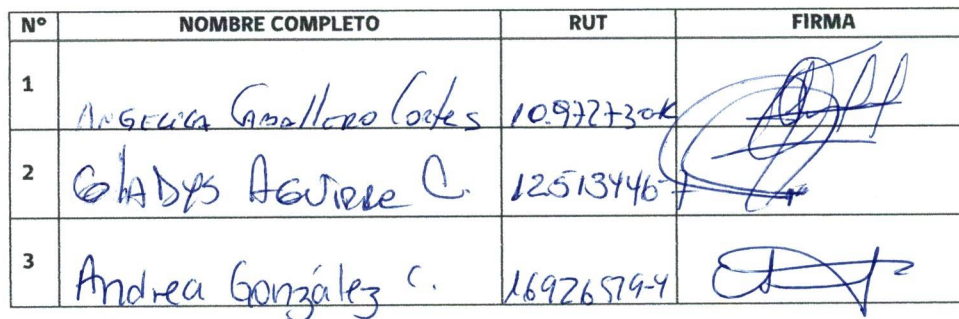 N° NOMBRE COMPLETO RUT FIRMA
1 ANGELICA Caballero Cortes 10.972730-K
2 GLADYS AGUIRRE C. 12513446-7
3 Andrea González C. 16926579-4